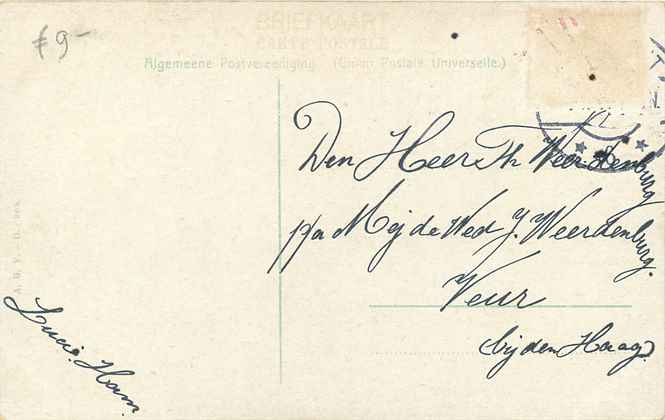 BRIEFKAART
CARTE POSTALE
Algemeene Postvereeniging. (Union Postale Universelle.)
f 9-
Den Heer Th Weerdenburg
p/a Mej de Wed J. Weerdenburg.
Veur
(bij den Haag)
Lucie. Ham.